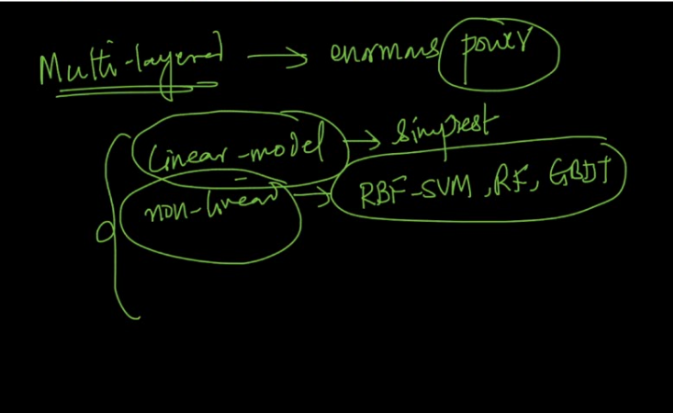 Multi-layered → enormous power
linear-model → simplest
non-linear → RBF-SVM, RF, GBDT